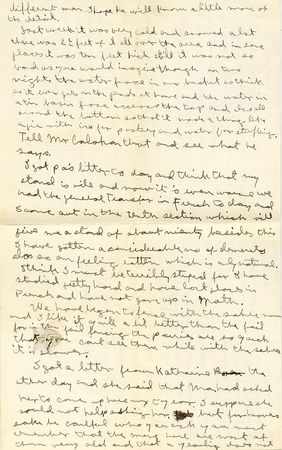 different man I hope he will know a little more of
the detail.
Last week it was very cold and snowed a lot
there was 2½ feet of it all over the area and in some
places it was ten feet thick still it was not so
bad as you would imagine though on two
nights the water froze in my bucket as thick
as it ever gets on the ponds at home and the water in
a tin basin froze across the top and
around the bottom so that it made a thing like
a pie with ice for pastry and water for stuffing.
Tell Mr Calahan that and see what he
says.
I got pa's letter to day and think that my
stand is vile and now it is even worse we
had the general transfer in French to day and
I came out in the tenth section which will
give me a stand of about ninety besides this
I have gotten a considerable no of demerits
also so am feeling rotten which is only natural.
I think I must be terribly stupid for I have
studied pretty hard and have lost places in
French and have not gone up in Math.
We have begun to fence with the sabre now
and I like it quite a bit better than the foil
for in foil fencing the parries are so quick
that you cant see them while with the sabre
it is slower.
I got a letter from Katharine the
other day and she said that Ma had asked
her to come up here next year. I suppose she
could not help asking her but for heavens
sake be careful who you ask you must
remember that the men here are most of
them very old and that a yearling does not